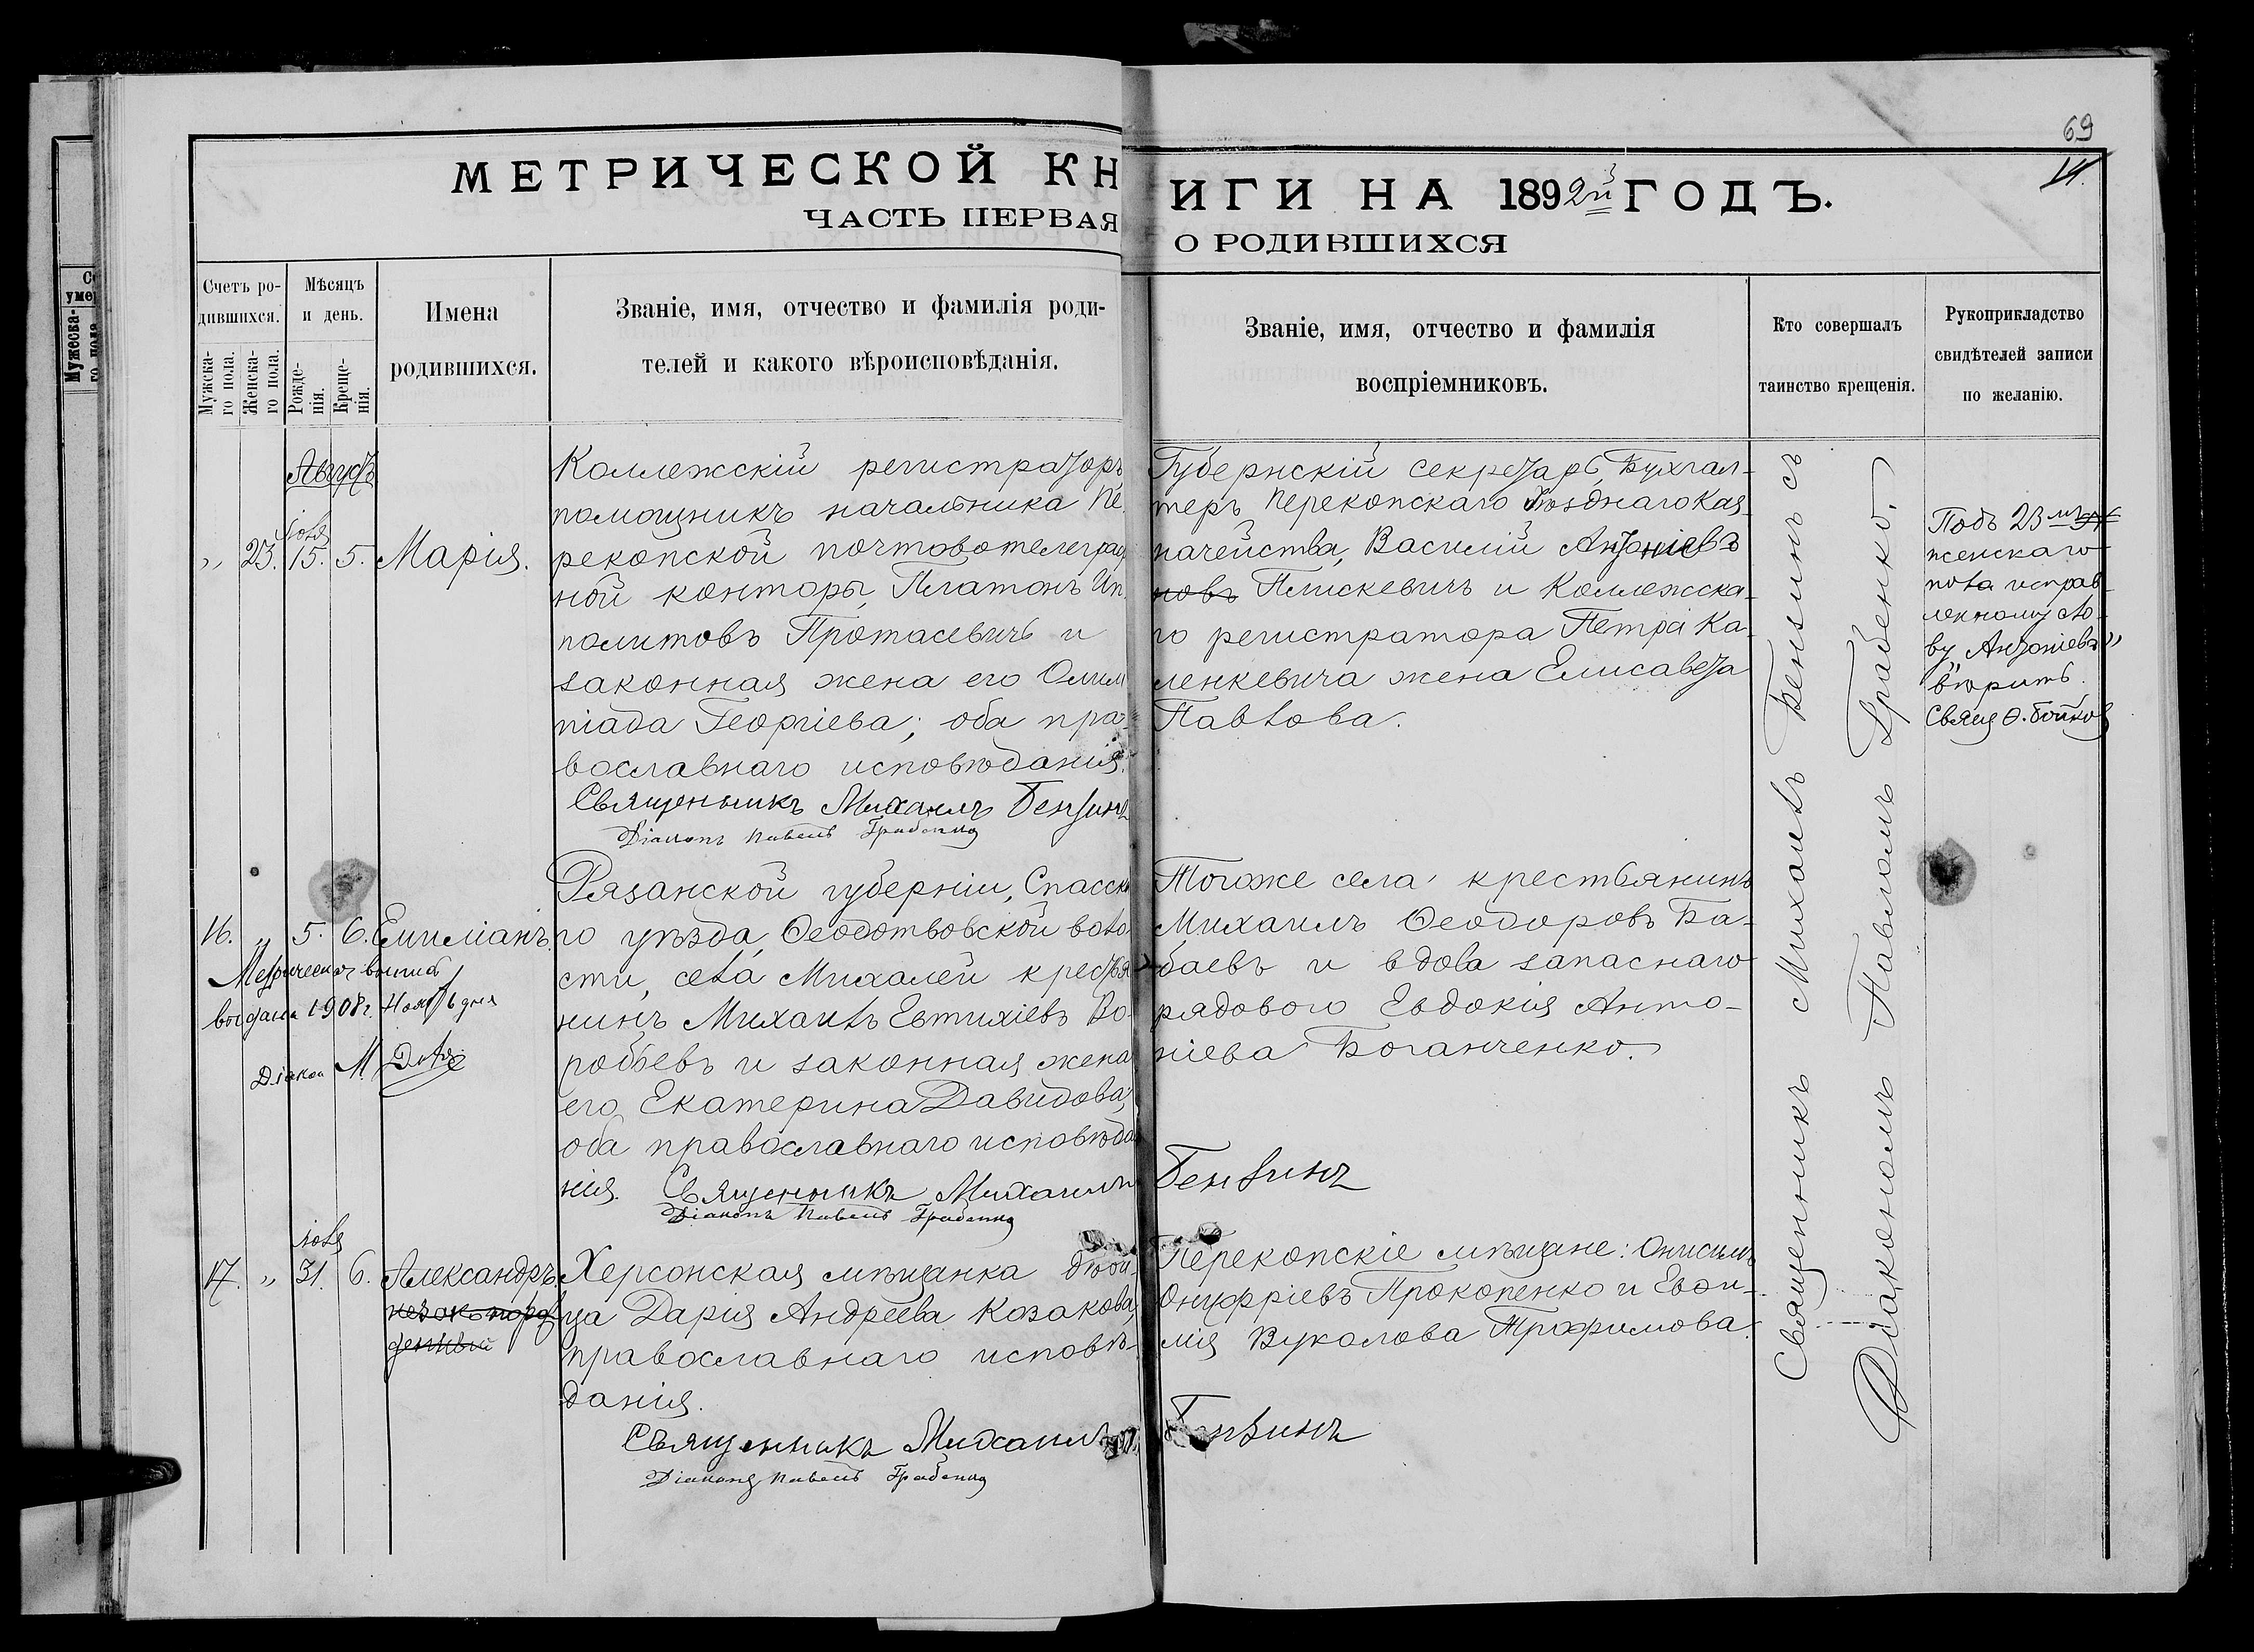 69
МЕТРИЧЕСКОЙ КНИГИ НА 1892й ГОДЪ.
11.
ЧАСТЬ ПЕРВАЯ О РОДИВШИХСЯ
Счетъ ро-
дившихся.
Мужска-
го пола.
Женска-
го пола.
Мѣсяцъ
и день.
Рожде-
нія.
Креще-
нія.
Имена
родившихся.
Званіе, имя, отчество и фамилія роди-
телей и какого вѣроисповѣданія.
Званіе, имя, отчество и фамилія
воспріемниковъ.
Кто совершалъ
таинство крещенія.
Рукоприкладство
свидѣтелей записи
по желанію.
умер
Мужеска-
го пола
Августъ
Іюля
„ 23. 15. 5. Марія.
Коллежскій регистраторъ,
помощникъ начальника Пе-
рекопской почтовотелеграф
ной конторы, Платонъ Ип
политовъ Протасевичъ и
законная жена его Олим
піада Георгіева; оба пра-
вославнаго исповѣданія.
Священникъ Михаилъ Бензинъ
Діаконъ Павелъ Грабенко
Губернскій секретарь, Бухгал-
теръ Перекопскаго Уѣзднаго Каз-
начейства, Василій Антоніевъ
новъ Плискевичъ и Коллежска-
го регистратора Петра Ка-
ленкевича жена Елисавета
Павлова.
Подъ 23 мъ
женскаго
пола исправ-
ленному сло-
ву „Антоніевъ"
вѣрить.
Свящ Ѳ. Бойков
16. „ 5. 6. Емиліанъ.
Метрическая выпись
выдана 1908 г. Нояб 6 дня
Діакон М.
Рязанской губерніи, Спасска
го уѣзда, Ѳеодотьевской воло
сти, села Михалей крестья
нинъ Михаилъ Евтихіевъ Во-
робьевъ и законная жена
его Екатерина Давидова;
оба православнаго исповѣда
нія. Священникъ Михаилъ Бензинъ
Діаконъ Павелъ Грабенко
Тогоже села крестьянинъ
Михаилъ Ѳеодоровъ Ба-
баевъ и вдова запаснаго
рядового Евдокія Анто-
ніева Боганченко.
Іюля
17. „ 31. 6. Александръ.
незаконорож
денный
Херсонская мѣщанка дѣви-
ца Дарія Андреева Козакова,
православнаго исповѣ-
данія.
Священникъ Михаилъ Бензинъ
Діаконъ Павелъ Грабенко
Перекопскіе мѣщане: Онисимъ
Онуфріевъ Прокопенко и Евѳи-
мія Вуколова Трофимова.
Священникъ Михаилъ Бензинъ съ
Діакономъ Павломъ Грабенко.